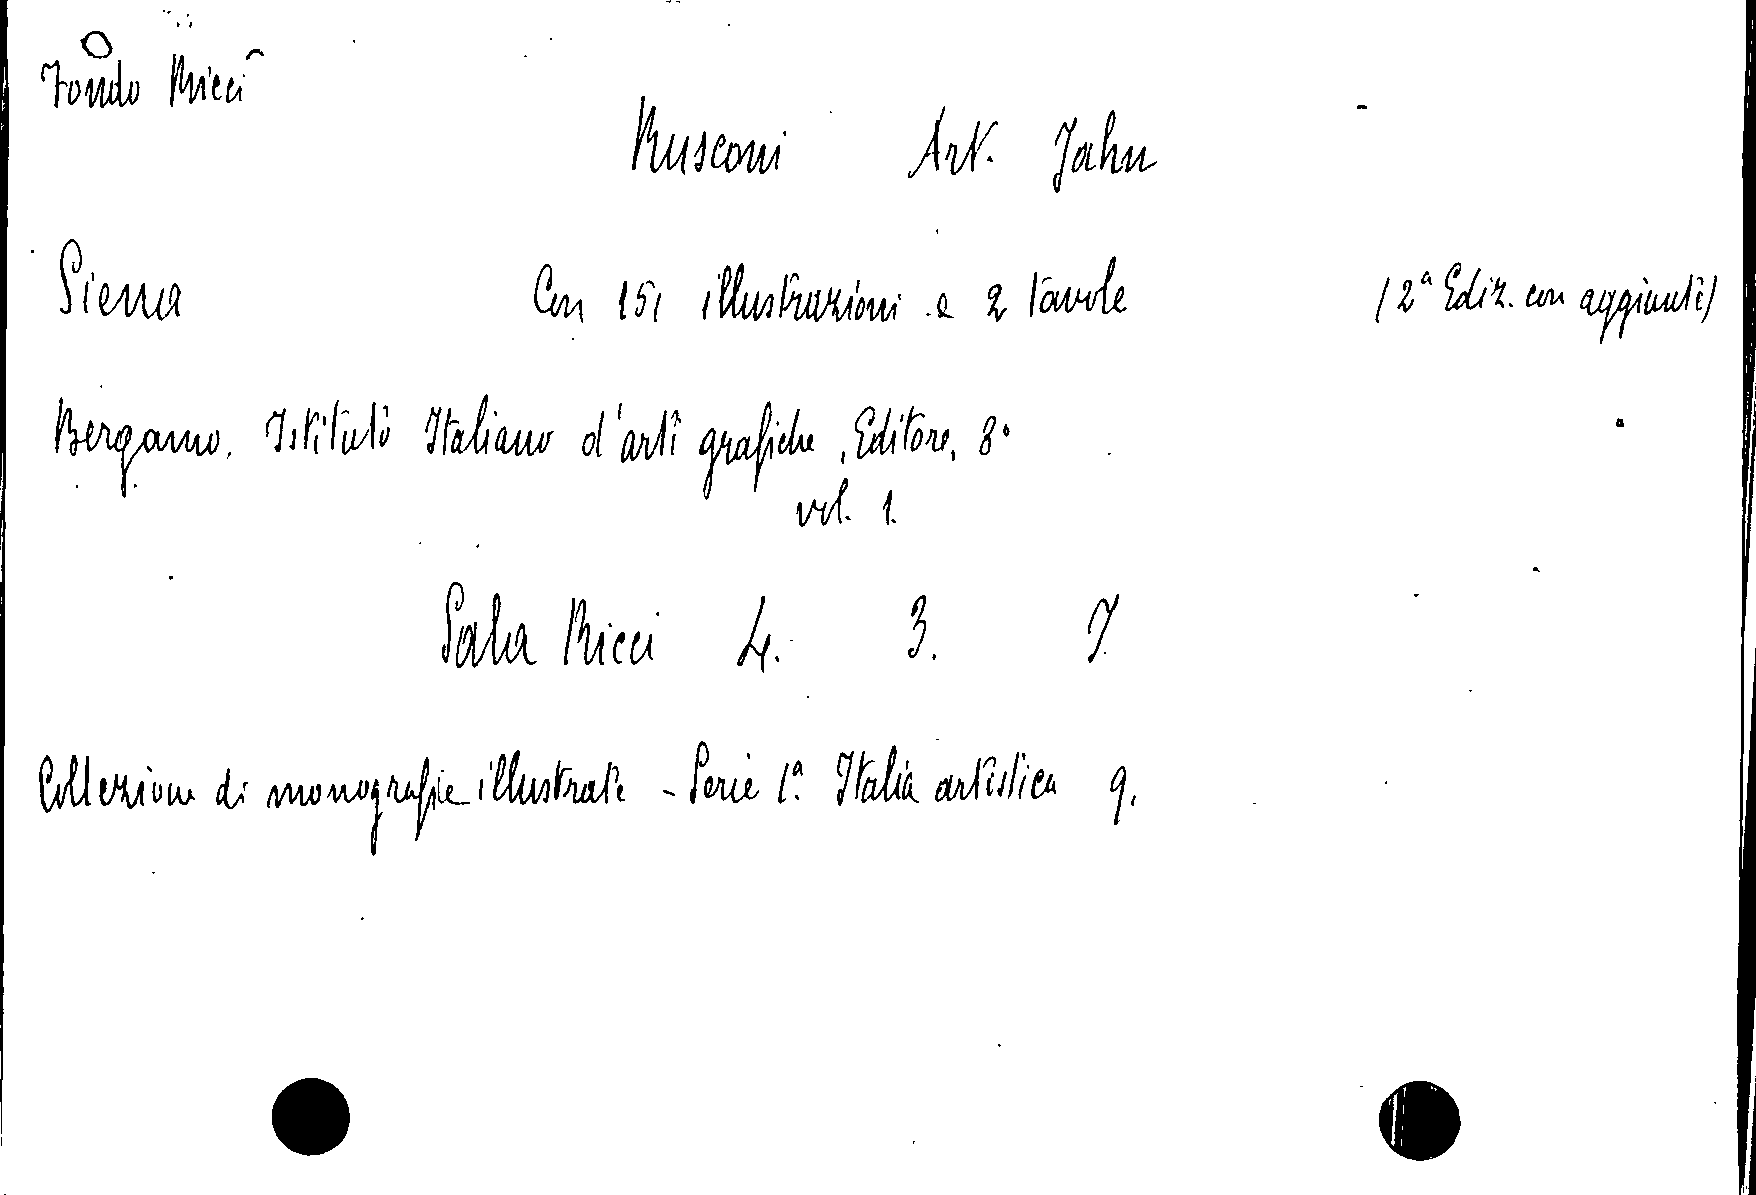 Fondo Ricci
Rusconi Art. Jahn
Siena Con 151 illustrazioni e 2 tavole (2ª Ediz. con aggiunte)
Bergamo. Istituto Italiano d'arti grafiche, Editore, 8°
vol. 1.
Sala Ricci 4. 3. 7.
Collezione di monografie illustrate - Serie 1ª. Italia artistica 9.